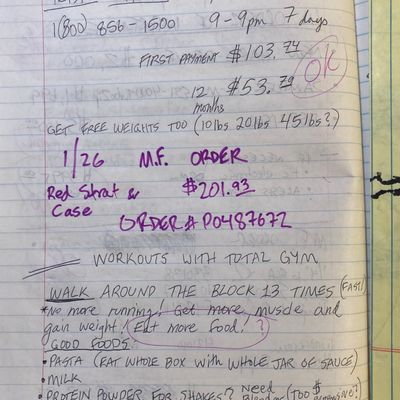 1(800) 856-1500 9-9pm 7 days
FIRST PAYMENT $103.74
OK
12 months $53.79
GET FREE WEIGHTS TOO (10lbs 20lbs 45lbs?)
1/26 M.F. ORDER
Red Strat & Case $201.93
ORDER # P0487672
WORKOUTS WITH TOTAL GYM
WALK AROUND THE BLOCK 13 TIMES (FAST!)
*No more running! Get more, muscle and
gain weight! Eat more food! ?
GOOD FOODS
• PASTA (EAT WHOLE BOX with WHOLE JAR OF SAUCE)
• MILK
• PROTEIN POWDER FOR SHAKES? Need
(Too $